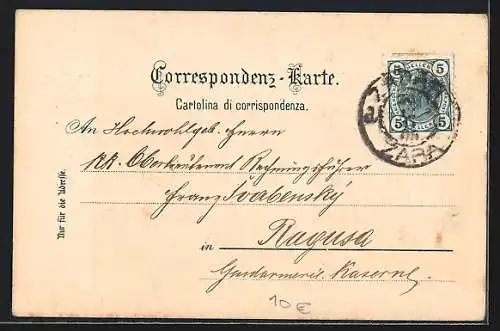 Correspondenz-Karte.
Cartolina di corrispondenza.
5 HELLER 5
5 5
ZARA
ZARA
2
An Hochwohlgeb. Herrn
KK. Oberleutenant Rechnungsführer
Franz Svabensky
in Ragusa
Gendarmerie Kaserne.
Nur für die Adresse.
10 €